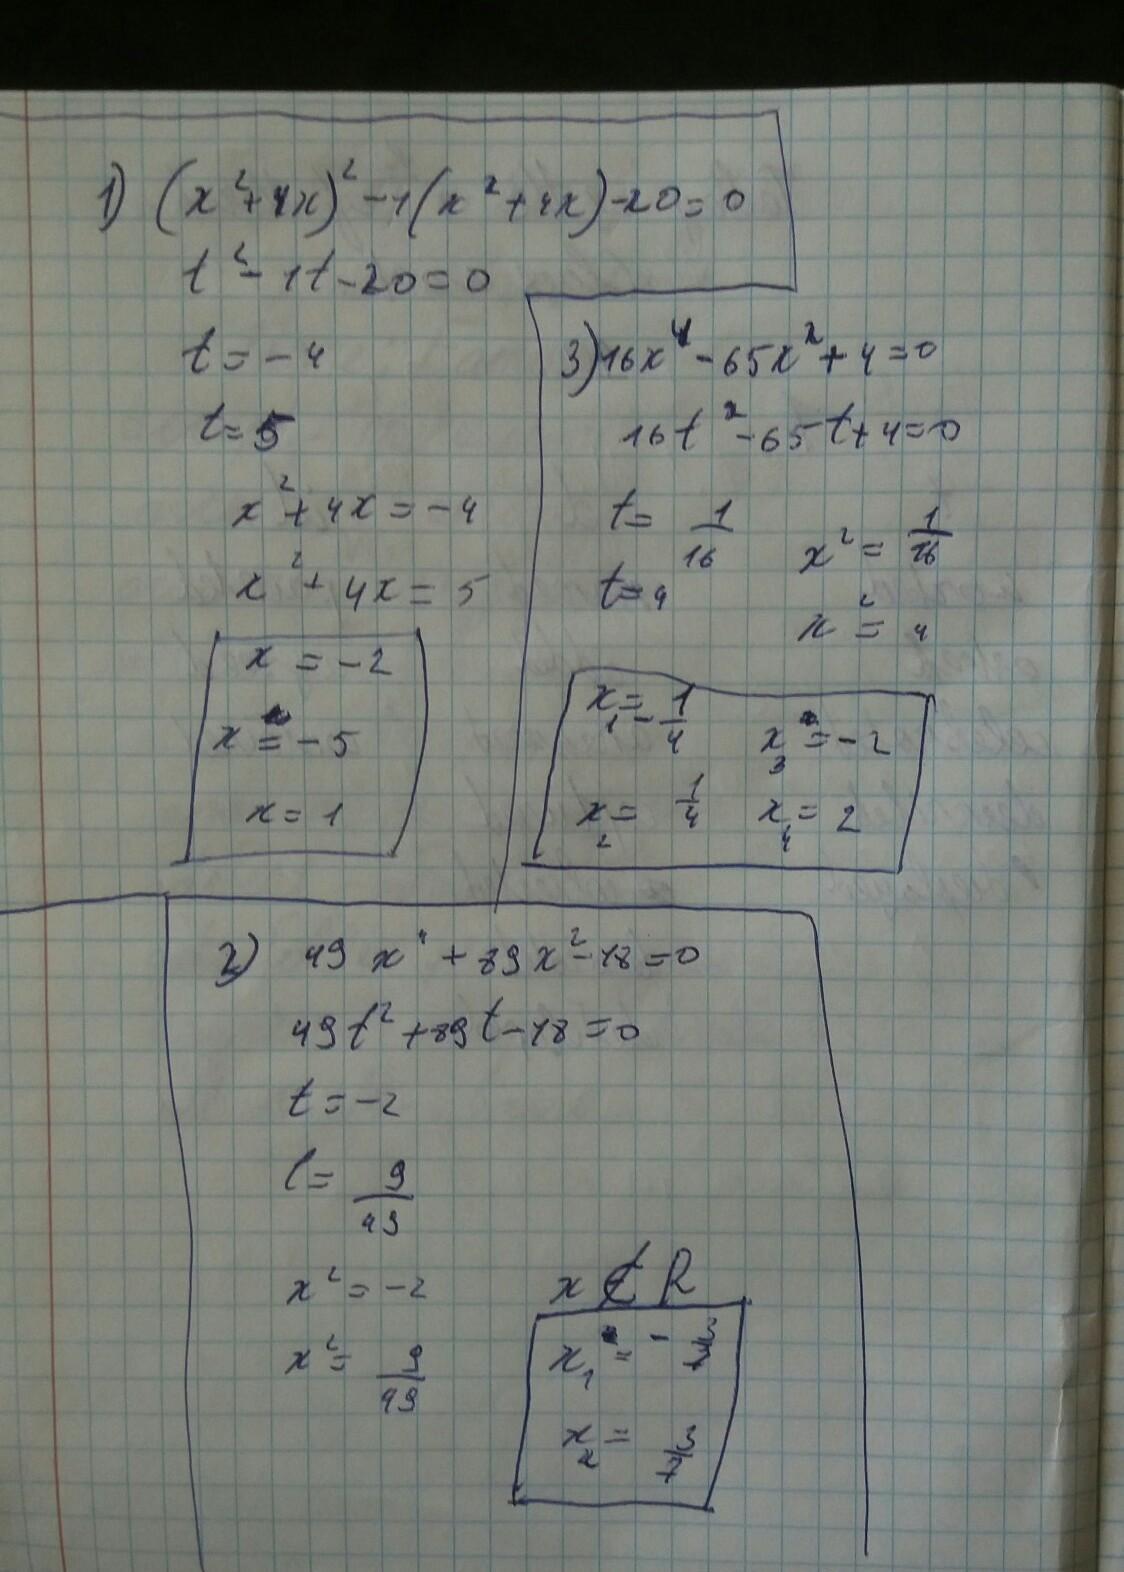 1) (x²+4x)²-1(x²+4x)-20=0
t²-1t-20=0
t=-4
t=5
x²+4x=-4
x²+4x=5
x=-2
x=-5
x=1
3) 16x⁴-65x²+4=0
16t²-65t+4=0
t= 1/16
t=4
x²= 1/16
x²=4
x₁=-1/4
x₂= 1/4
x₃=-2
x₄=2
2) 49x⁴+89x²-18=0
49t²+89t-18=0
t=-2
t= 9/49
x²=-2
x²= 9/49
x∉R
x₁=-3/7
x₂= 3/7